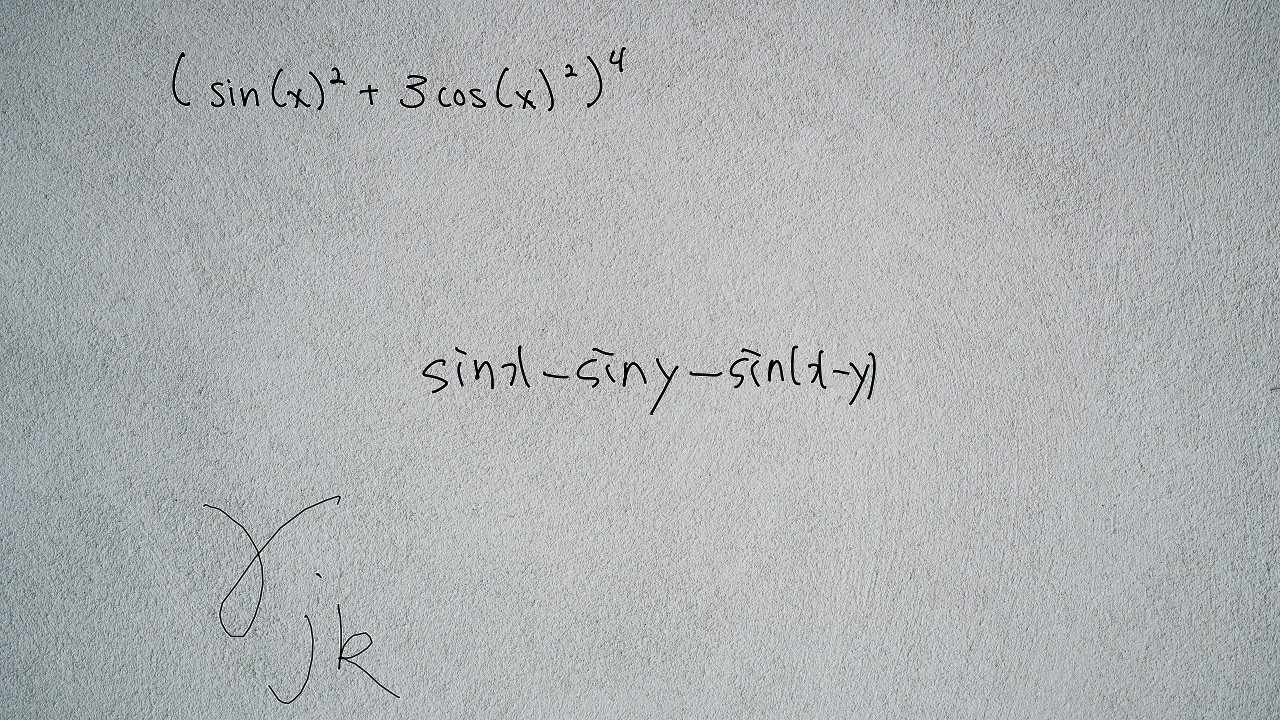 (sin(x)² + 3cos(x)²)⁴
sinx − siny − sin(x−y)
γ_jk